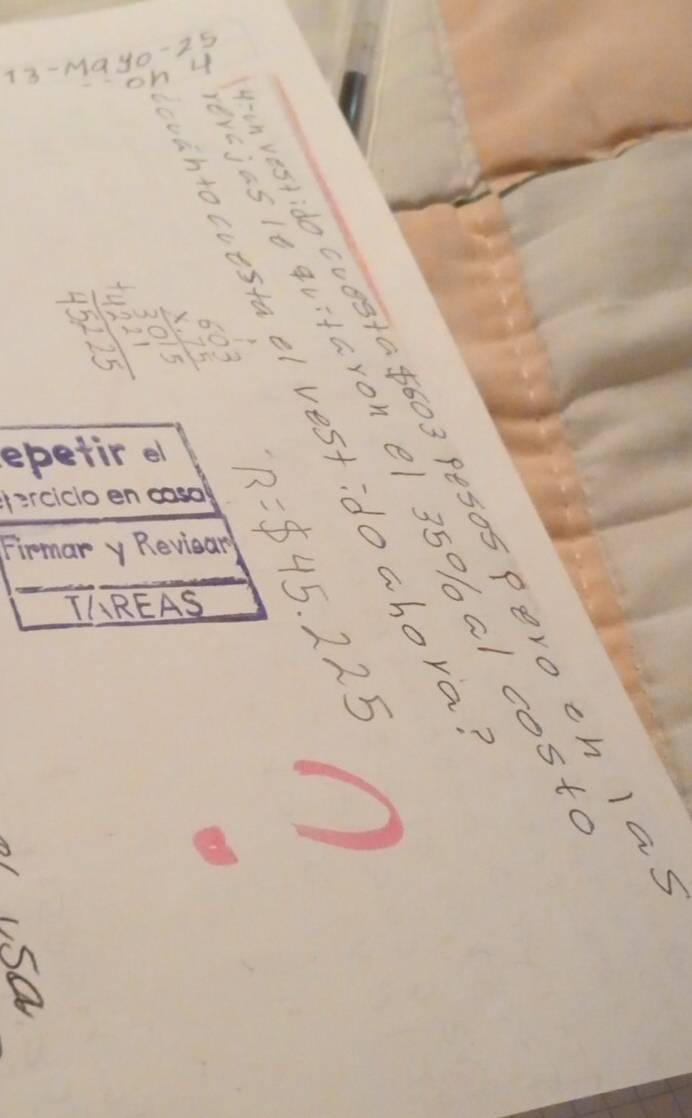 13-Mayo-25
on 4
4-un vestido cuesta $603 pesos pero en las
revajas le quitaron el 35% al costo
¿cuánto cuesta el vestido ahora?
R=$45.225
603
x.75
3015
+4221
45225
epetir el
ercicio en casa
Firmar y Revisar
TAREAS
usa